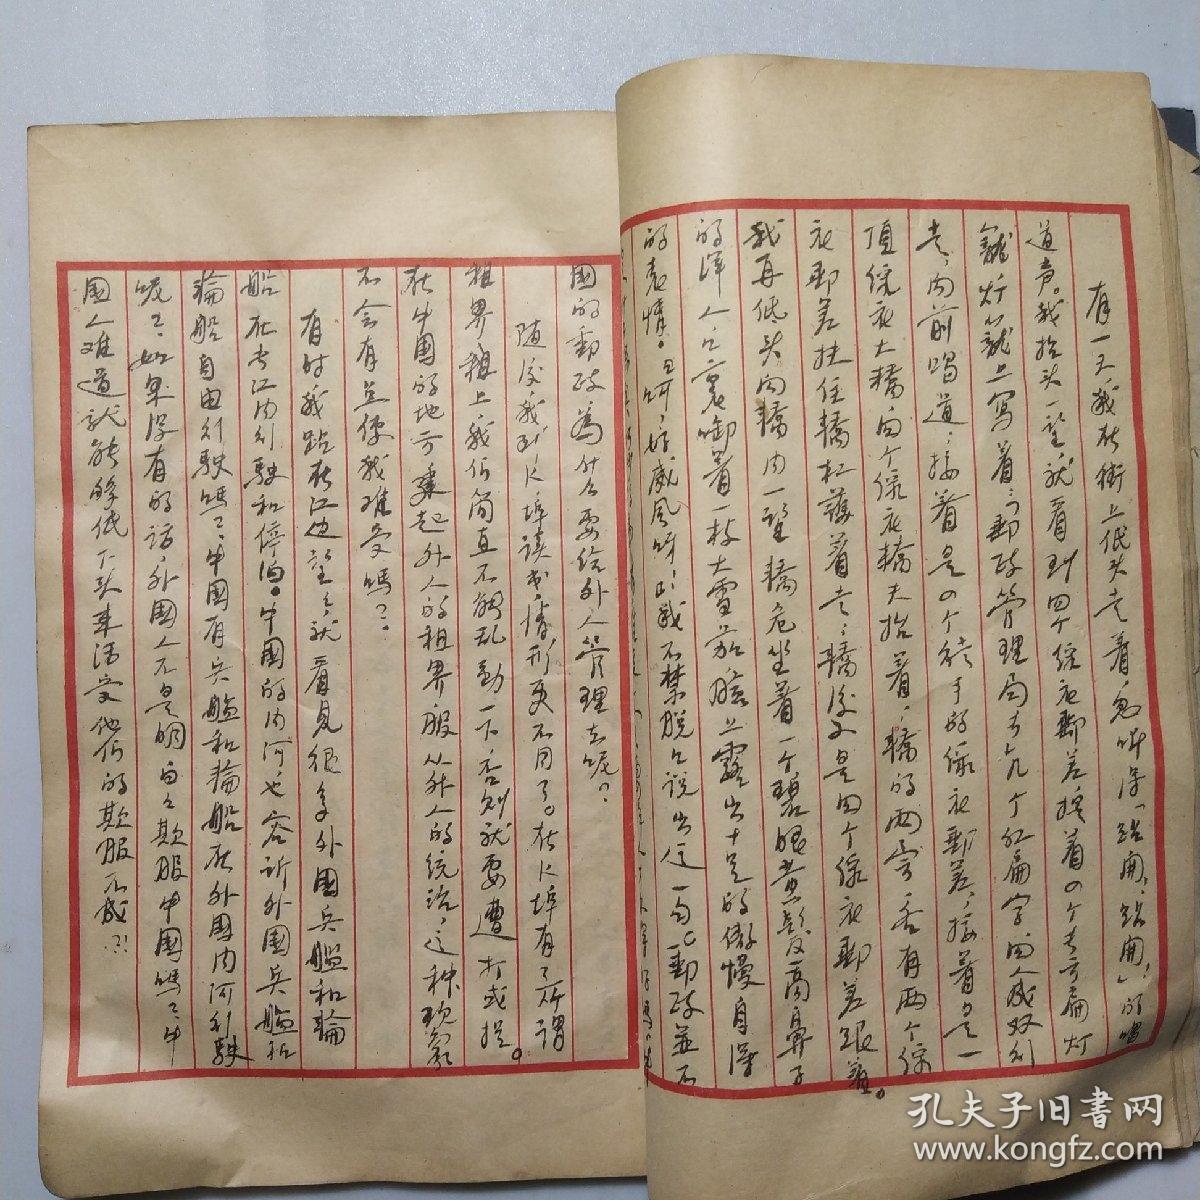 有一天我在街上低头走着，忽听得「站開，站開，」的喝
道声。我抬头一望就看到四个綠衣郵差撐着四个长方扁灯
籠，灯籠上写着：郵政管理局大九个红扁字，两人成双列
走，向前喝道；接着是四个徒手的綠衣郵差，接着是一
頂綠衣大轎由个綠衣轎夫抬着，轎的两旁各有两个綠
衣郵差扶住轎杠護着走；轎後又是四个綠衣郵差跟着。
我再低头向轎内一望，轎危坐着一个碧眼黄髮高鼻子
的洋人，口裏啣着一枝大雪茄，臉上露出十足的傲慢自得
的表情。「呵，好威风呀！」我不禁脱口说出这一句。郵政並不
國的郵政，為什么要给外人管理去呢？
随後我到仁埠读书，情形更不同了。在仁埠有了所谓
租界，租上，我们简直不能乱动一下，否则就要遭打或捉。
在中国的地方奉起外人的租界，服从外人的统治，这种现象
不会有点使我难受吗？
有时我跕在江边望望，就看見很多外国兵艦和輪
船在长江内行駛和停泊。中國的内河也容許外国兵艦和
輪船自由行駛嗎？中國有兵艦和輪船在外国内河行駛
呢？如果没有的话，外國人不是明白欺服中国嗎？中
國人难道就能够低下头来活受他们的欺服不成？！
孔夫子旧书网
www.kongfz.com